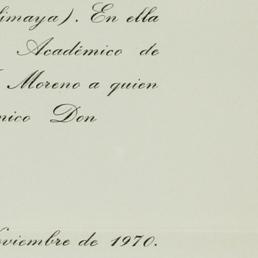 limaya). En ella
Académico de
Moreno a quien
nico Don
oviembre de 1970.